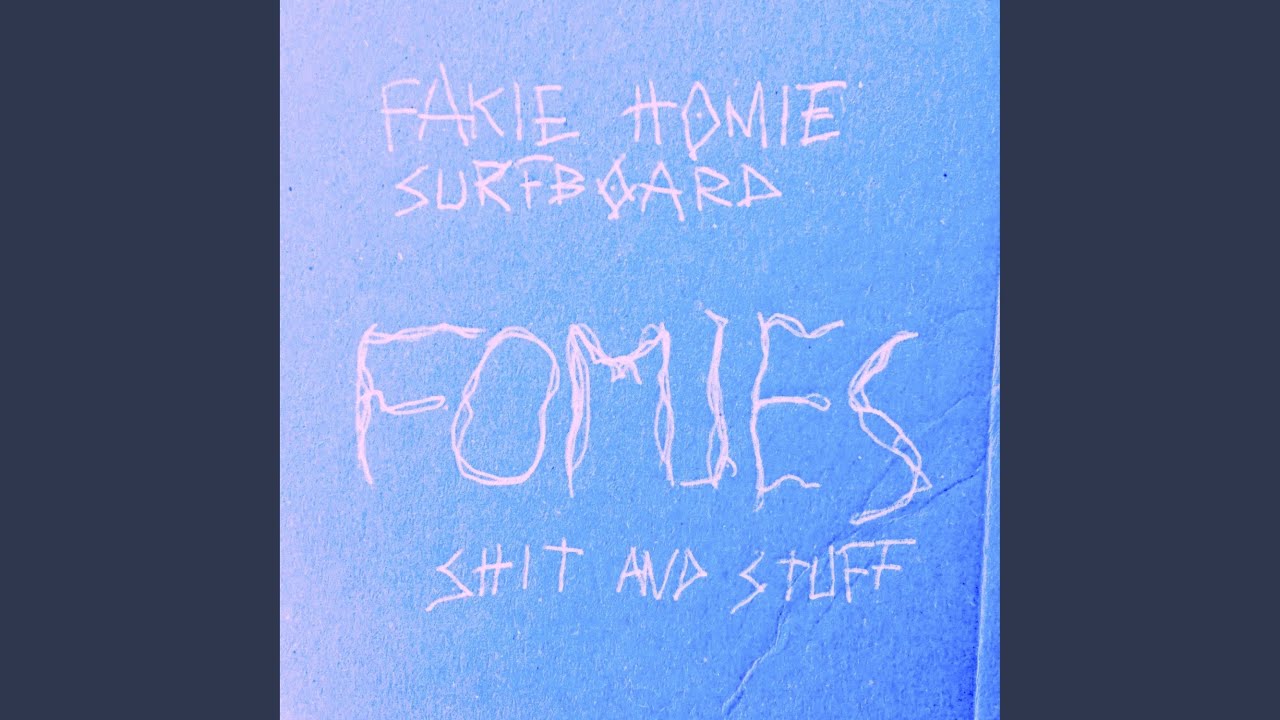 FAKIE HOMIE
SURFBOARD
FOMIES
SHIT AND STUFF